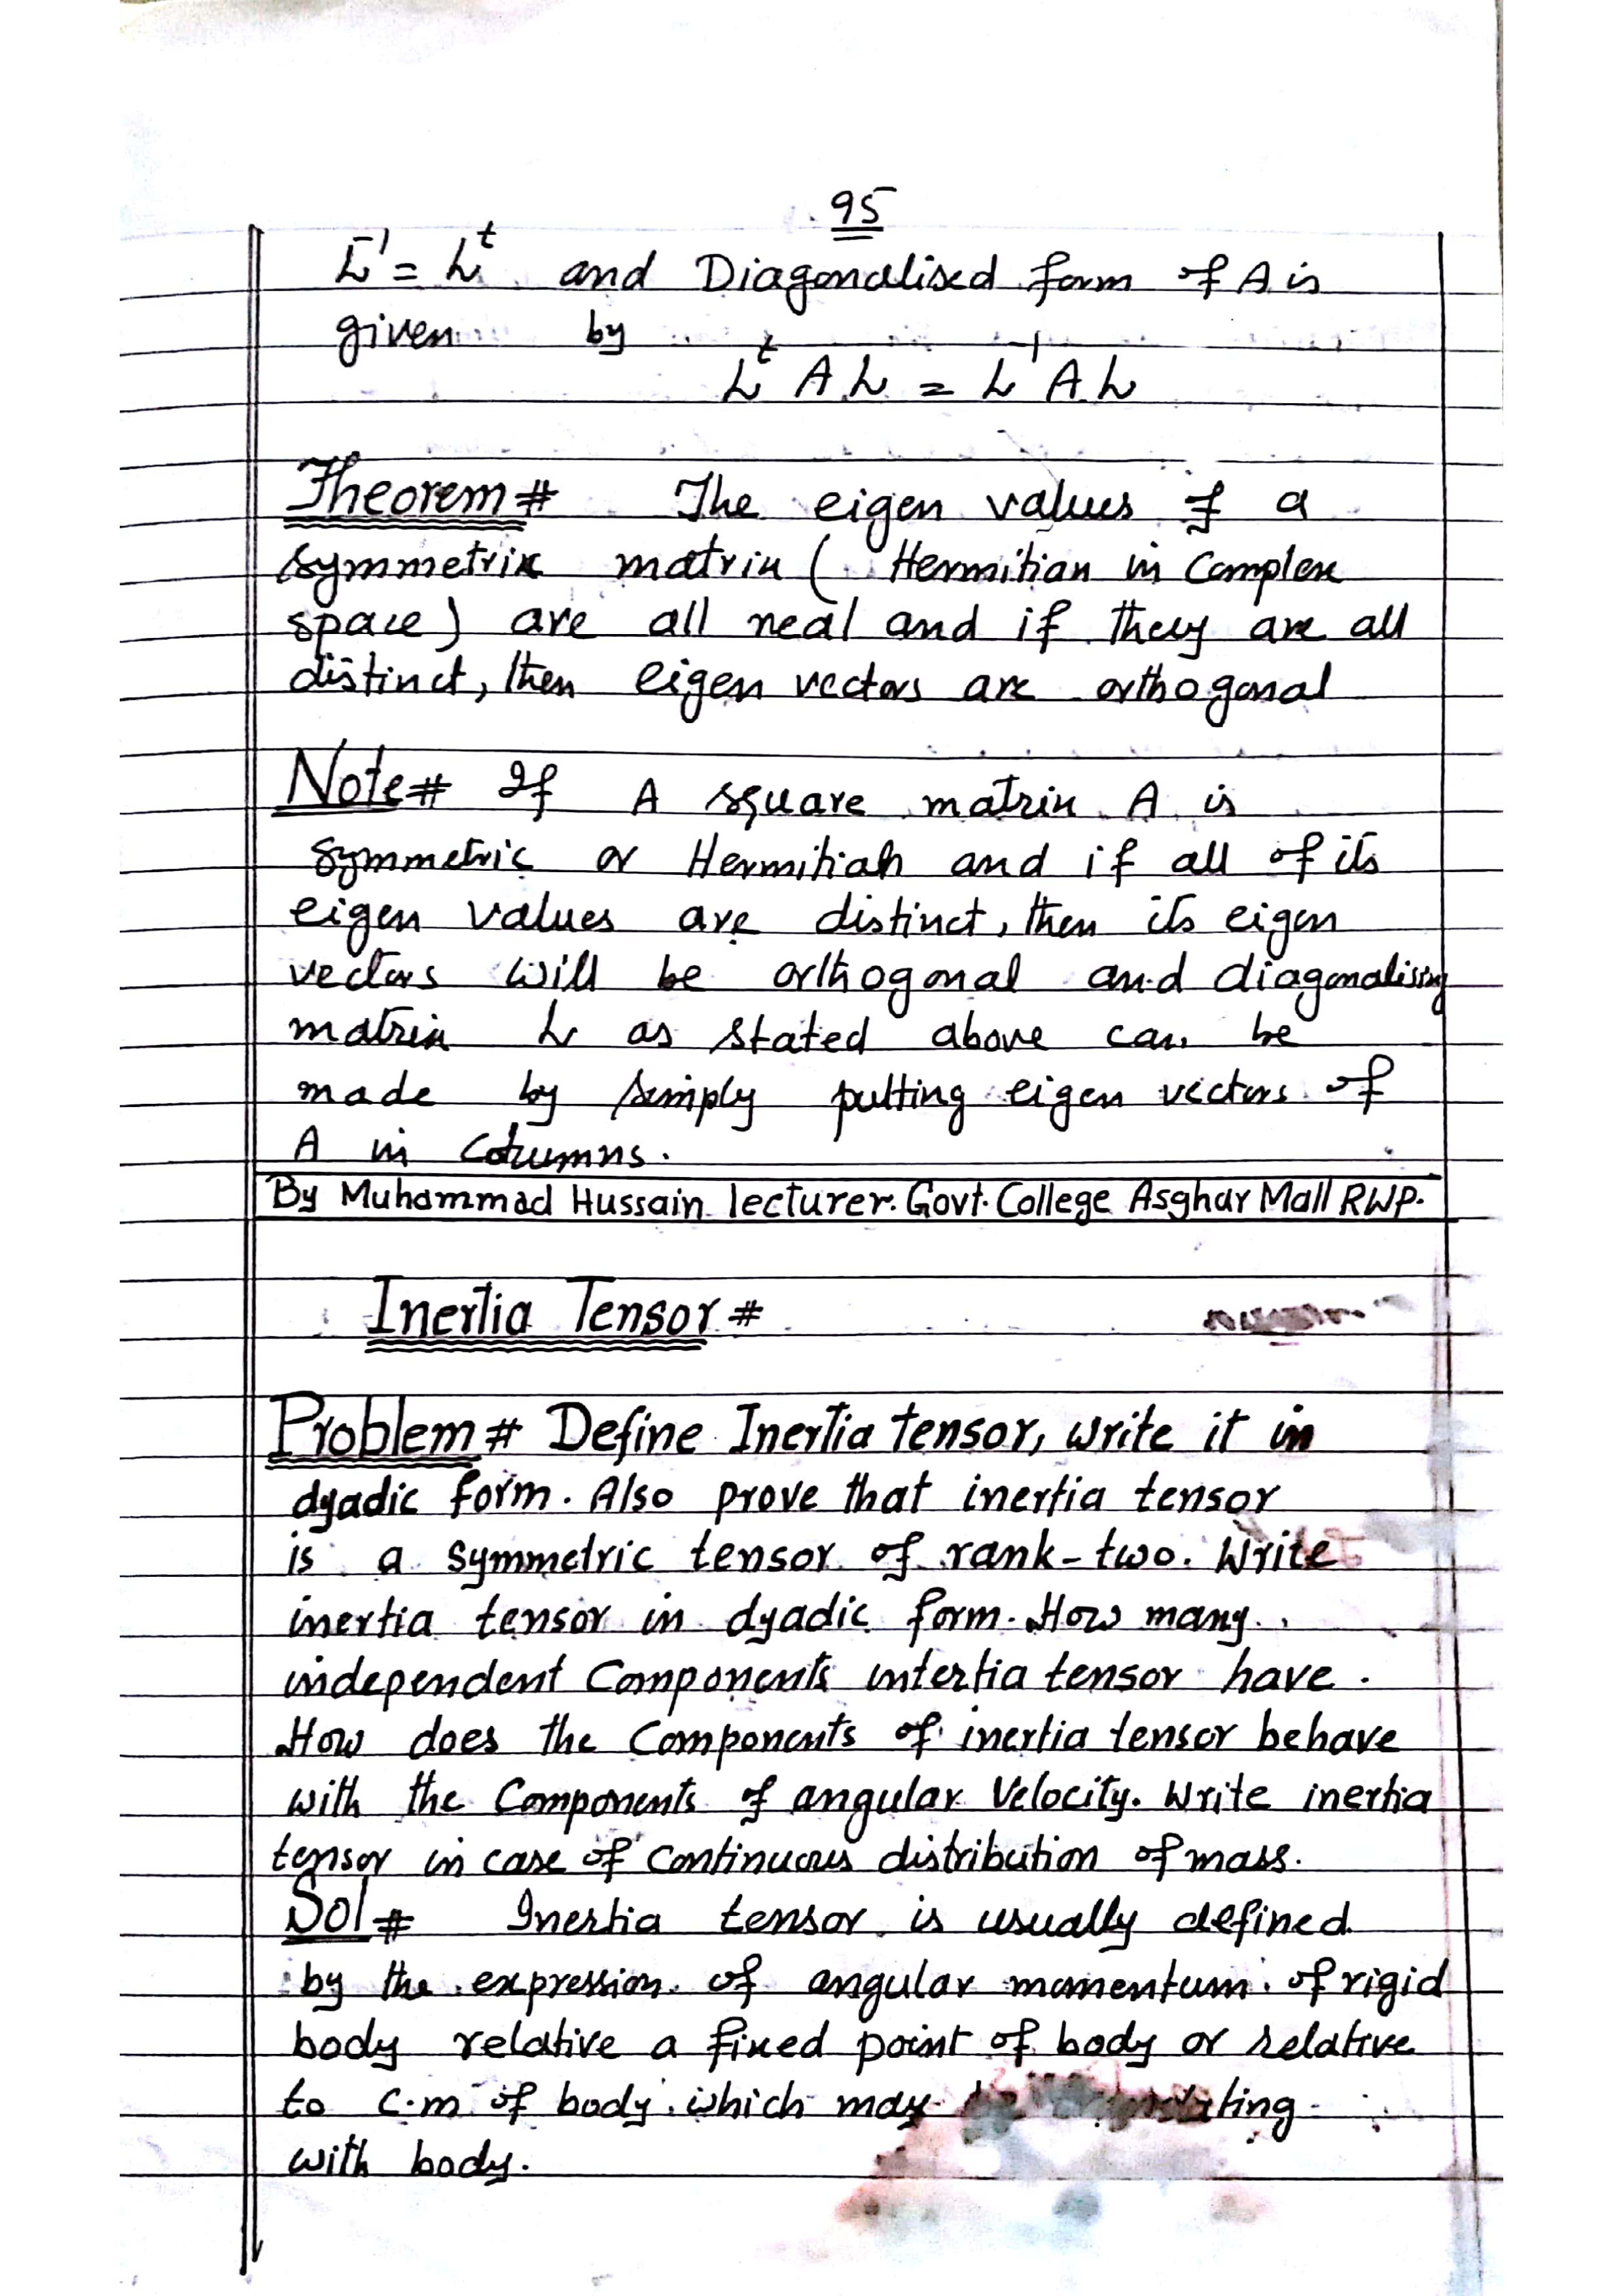 95
L⁻¹ = Lᵗ and Diagonalised form of A is
given by
Lᵗ A L = L⁻¹ A L
Theorem# The eigen values of a
symmetrix matrix ( Hermitian in Complex
space) are all real and if they are all
distinct, then eigen vectors are orthogonal
Note# If A square matrix A is
symmetric or Hermitian and if all of its
eigen values are distinct, then its eigen
vectors will be orthogonal and diagonalising
matrix L as stated above can be
made by simply putting eigen vectors of
A in columns.
By Muhammad Hussain lecturer. Govt. College Asghar Mall RWP.
Inertia Tensor #
Problem # Define Inertia tensor, write it in
dyadic form. Also prove that inertia tensor
is a symmetric tensor of rank-two. Write
inertia tensor in dyadic form. How many
independent Components intertia tensor have.
How does the Components of inertia tensor behave
with the Components of angular Velocity. Write inertia
tensor in case of Continuous distribution of mass.
Sol # Inertia tensor is usually defined
by the expression of angular momentum of rigid
body relative a fixed point of body or relative
to c.m of body which may
with body.